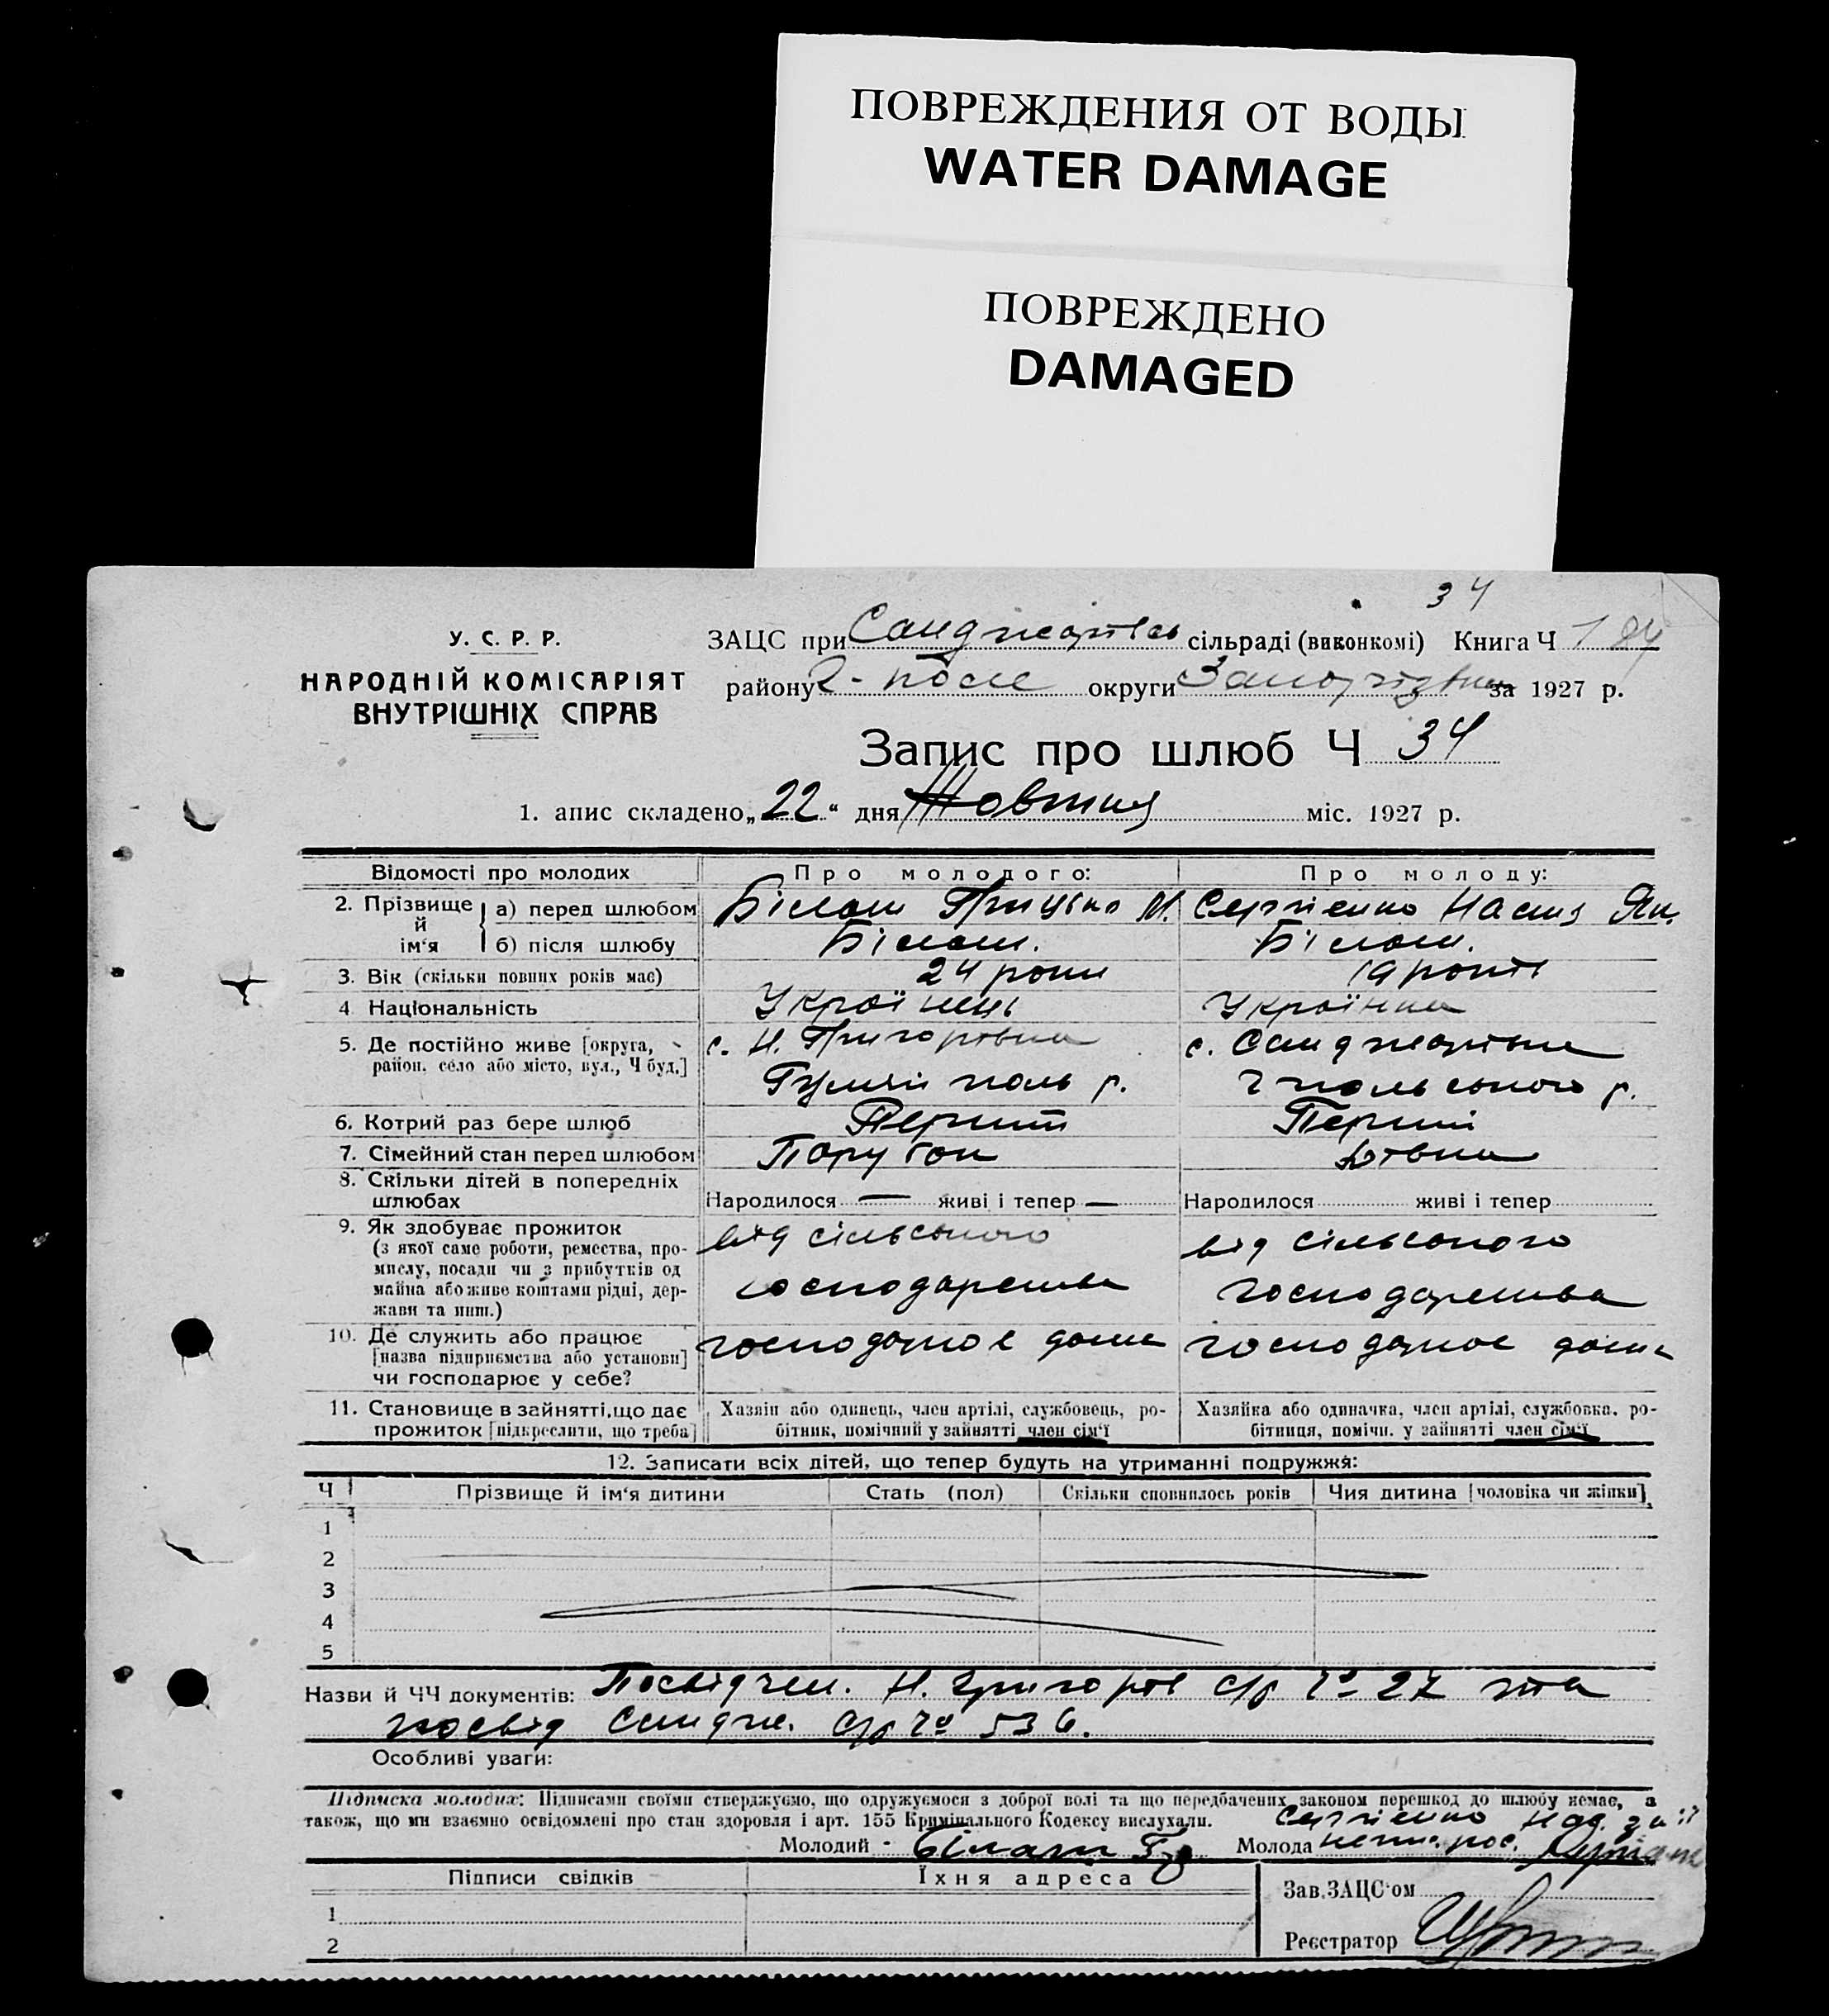 ПОВРЕЖДЕНИЯ ОТ ВОДЫ
WATER DAMAGE
ПОВРЕЖДЕНО
DAMAGED
34
У. С. Р. Р.
НАРОДНІЙ КОМІСАРІЯТ
ВНУТРІШНІХ СПРАВ
ЗАЦС при сільраді (виконкомі) Книга Ч 1
району округи за 1927 р.
Запис про шлюб Ч 34
1. апис складено „22“ дня Жовтня міс. 1927 р.
Відомості про молодих Про молодого: Про молоду:
2. Прізвище й ім‘я а) перед шлюбом Білаш Грицько М. Сергієнко Настя Як.
б) після шлюбу Білаш. Білаш.
3. Вік (скільки повних років має) 24 роки 19 років
4 Національність Українець Українка
5. Де постійно живе [округа, с. Н. Григорівка с. Санджарівка
район. село або місто, вул., Ч буд.] Гуляй поль р. Г польського р.
6. Котрий раз бере шлюб Перший Перший
7. Сімейний стан перед шлюбом Парубок Дівка
8. Скільки дітей в попередніх
шлюбах Народилося — живі і тепер — Народилося живі і тепер
9. Як здобуває прожиток
(з якої саме роботи, ремества, про- від сільського від сільського
мислу, посади чи з прибутків од
майна або живе коштами рідні, дер- господарства господарства
жави та инш.)
10. Де служить або працює господарює дома господарює дома
[назва підприємства або установи]
чи господарює у себе?
11. Становище в зайнятті, що дає Хазяін або одинець, член артілі, службовець, ро- Хазяйка або одиначка, член артілі, службовка, ро-
прожиток [підкреслити, що треба] бітник, помічний у зайнятті член сім‘ї бітниця, помічн. у зайнятті член сім‘ї
12. Записати всіх дітей, що тепер будуть на утриманні подружжя:
Ч Прізвище й ім‘я дитини Стать (пол) Скільки сповнилось років Чия дитина [чоловіка чи жінки]
1
2
3
4
5
Назви й ЧЧ документів: Посвідчен. Н. Григорів с/р № 27 та
посвід Сандж. с/р № 536.
Особливі уваги:
Підписка молодих: Підписами своїми стверджуємо, що одружуємося з доброї волі та що передбачених законом перешкод до шлюбу немає, а
також, що ми взаємно освідомлені про стан здоровля і арт. 155 Кримінального Кодексу вислухали. Сергієнко
Молодий - Білаш Гр Молода
Підписи свідків Їхня адреса
Зав. ЗАЦС‘ом
1
2
Реєстратор